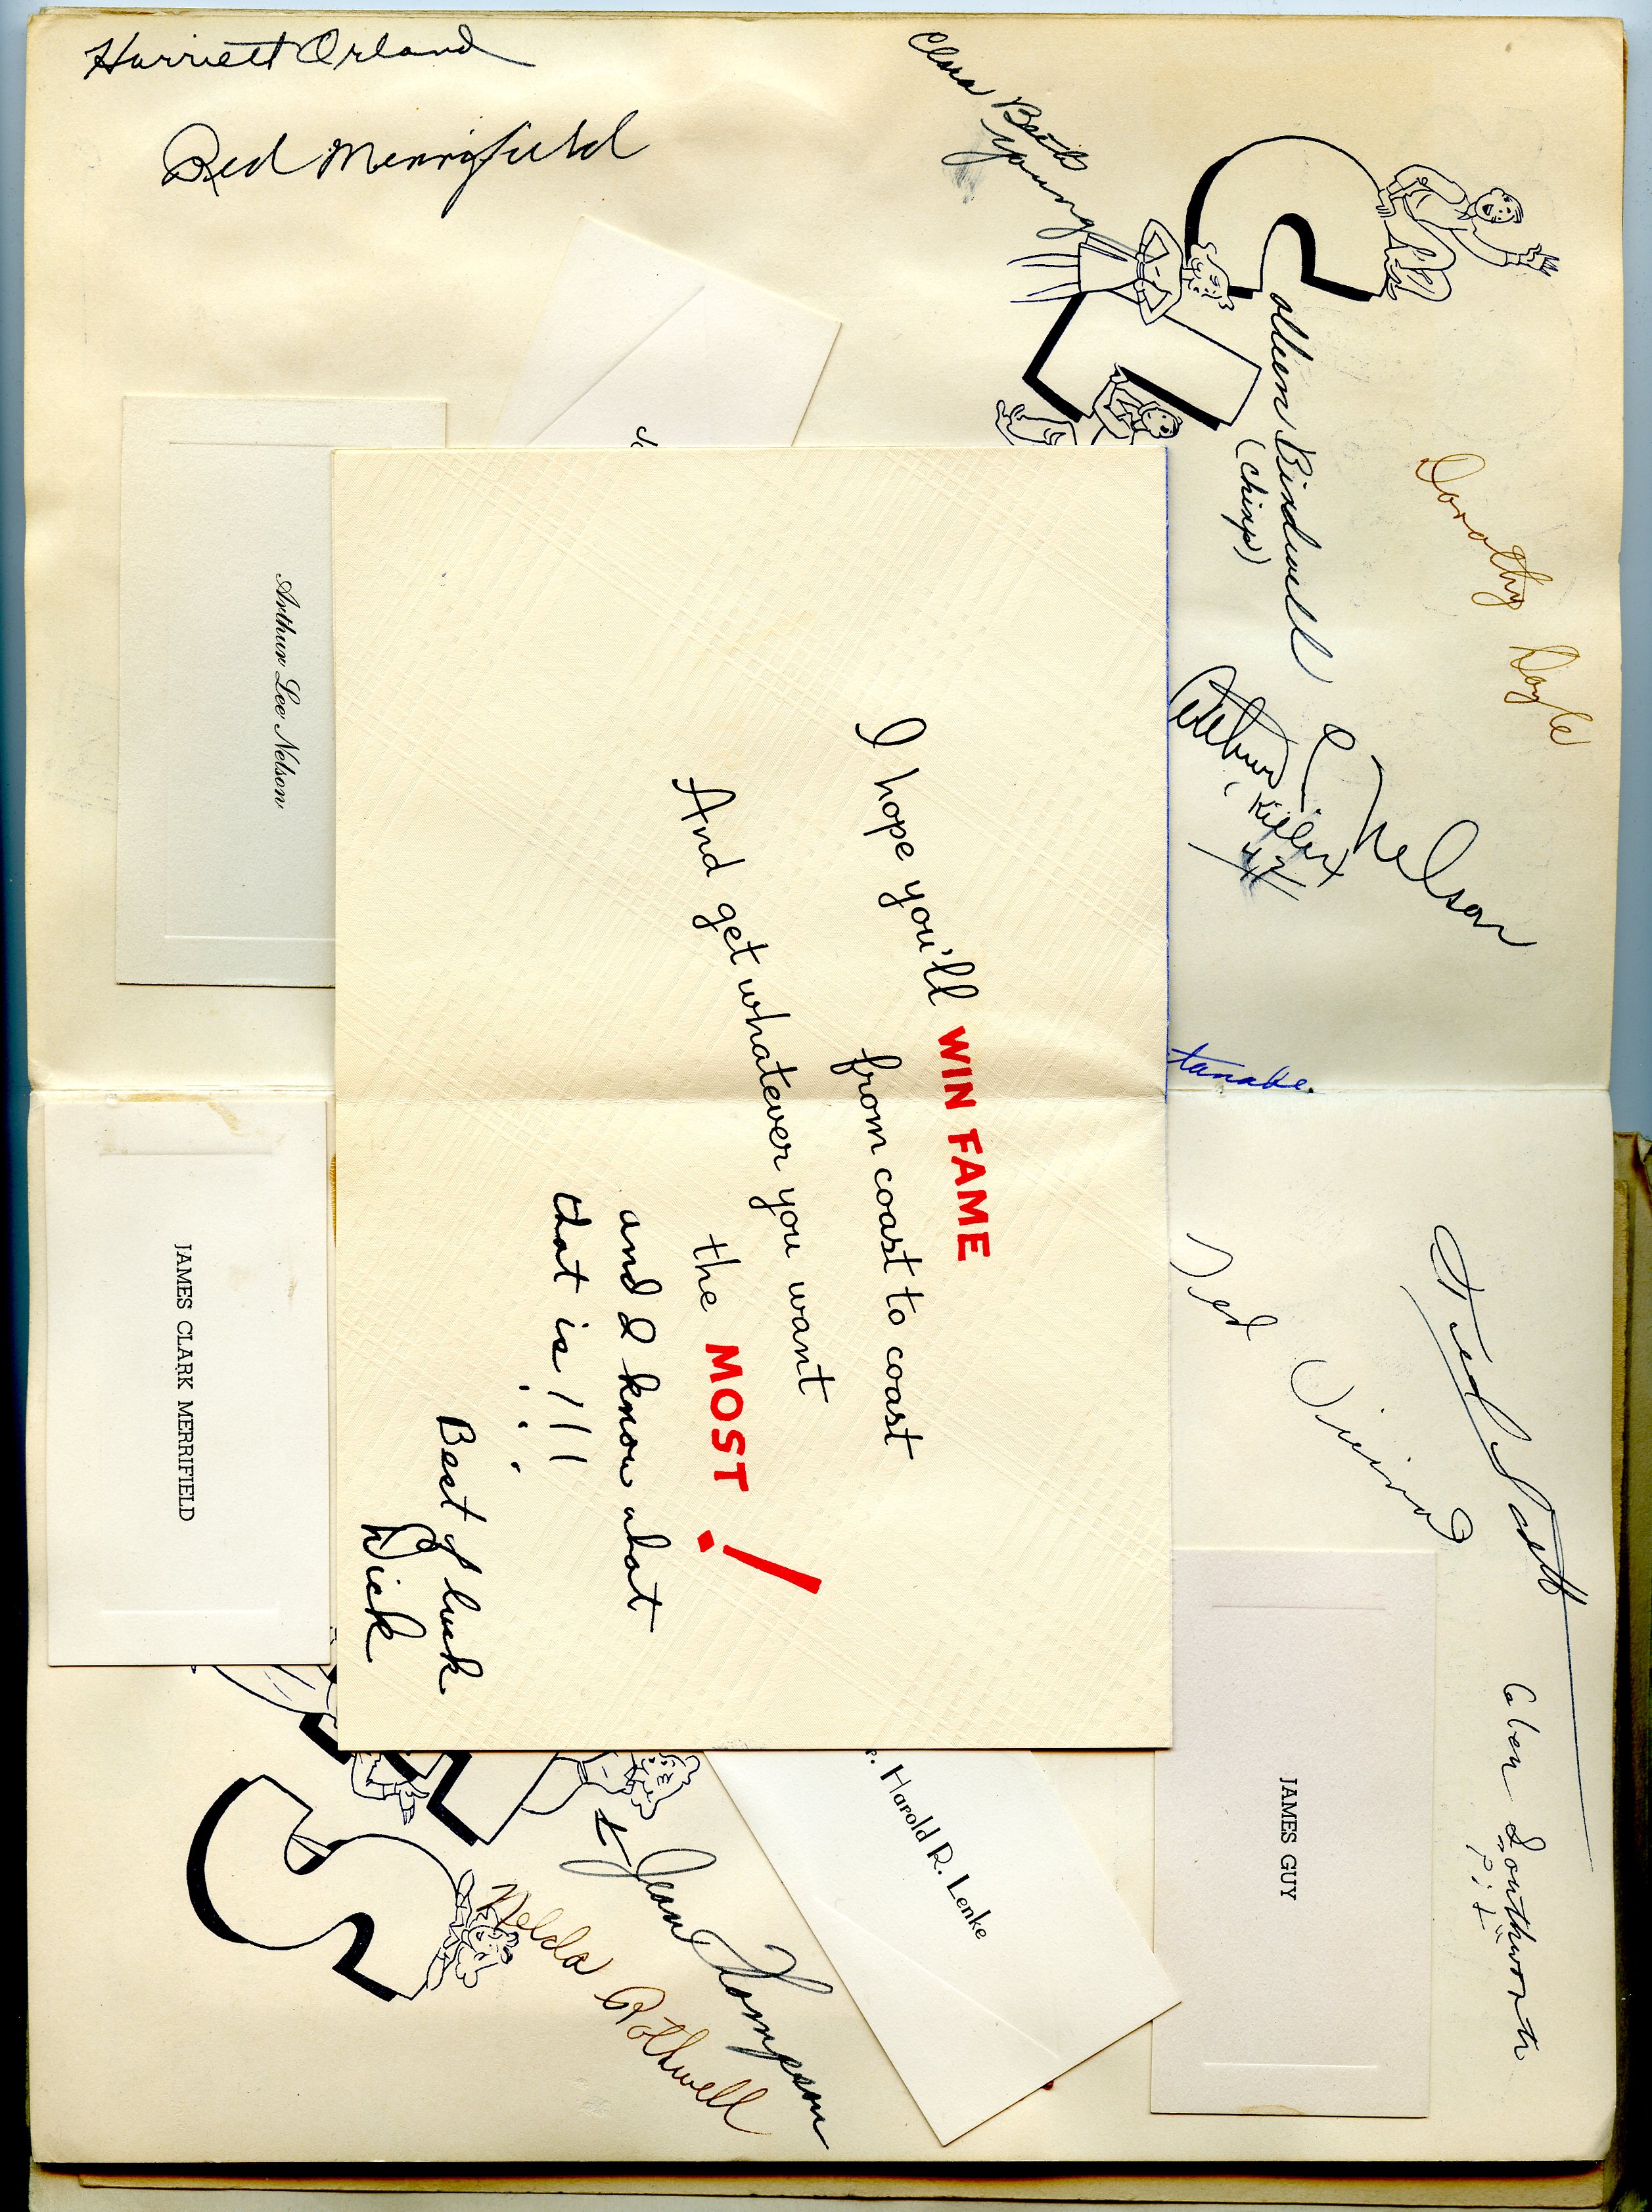 Harriett Orland
Red Merrifield
Clara Beth
Young
Colleen Bindwell
(chirp)
Dorothy Doyle
Arthur L Nelson
"Killer"
Arthur Lee Nelson
I hope you'll WIN FAME
from coast to coast
And get whatever you want
the MOST!
and I know what
that is!!!
Best of luck
Dick
tanabe.
Ted
JAMES CLARK MERRIFIELD
Scott
Caben Southworth
JAMES GUY
Harold R. Lenke
Jean Thompson
Nelda Rothwell